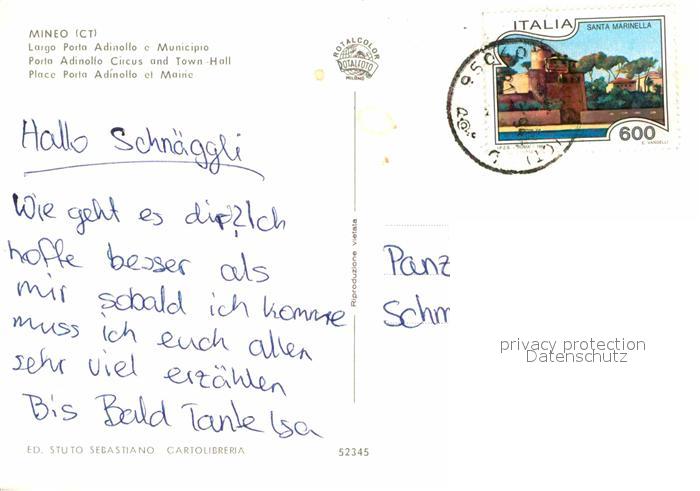 MINEO (CT)
Largo Porta Adinolfo e Municipio
Porta Adinolfo Circus and Town-Hall
Place Porta Adinolfo et Mairie
ROTALCOLOR
ROTALFOTO
MILANO
ITALIA
SANTA MARINELLA
600
I.P.Z.S. - ROMA
E. VANGELLI
Hallo Schnäggli
Wie geht es dir? Ich
hoffe besser als
mir sobald ich komme
muss ich euch allen
sehr viel erzählen
Bis Bald Tante Isa
Riproduzione vietata
Panz
Schm
privacy protection
Datenschutz
ED. STUTO SEBASTIANO CARTOLIBRERIA
52345